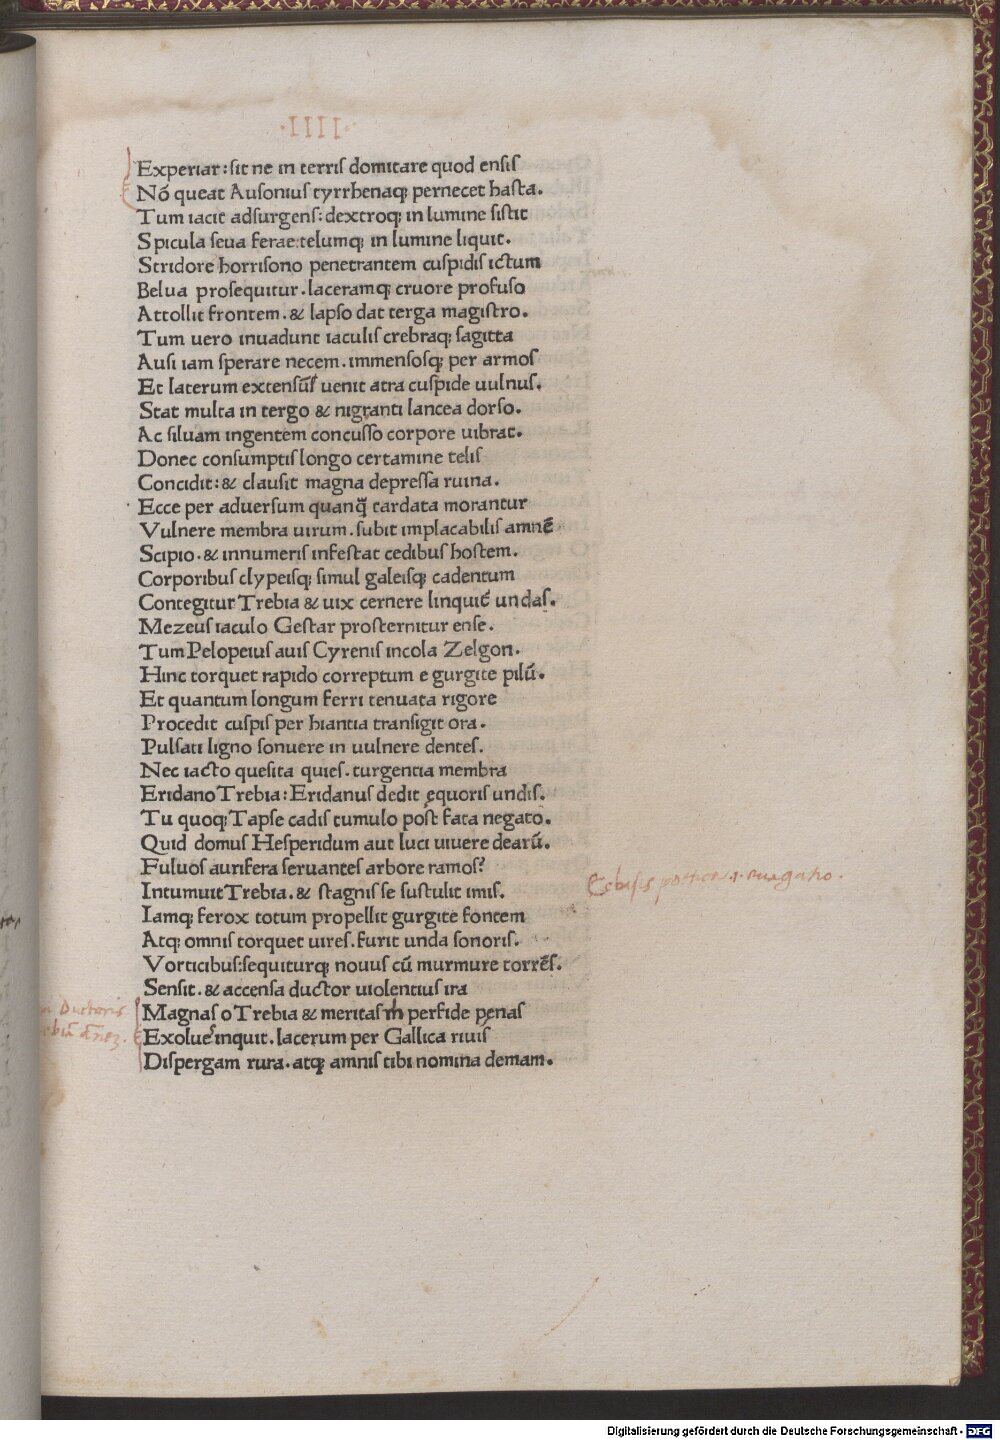 ·IIII·
Experiar: sit ne in terris domitare quod ensis
Nõ queat Ausonius tyrrhenaq; pernecet hasta.
Tum iacit adsurgens: dextroq; in lumine sistit
Spicula seua ferae: telumq; in lumine liquit.
Stridore horrisono penetrantem cuspidis ictum
Belua prosequitur. laceramq; cruore profuso
Attollit frontem. & lapso dat terga magistro.
Tum uero inuadunt iaculis crebraq; sagitta
Ausi iam sperare necem. immensosq; per armos
Et laterum extensũs uenit atra cuspide uulnus.
Stat multa in tergo & nigranti lancea dorso.
Ac siluam ingentem concusso corpore uibrat.
Donec consumptis longo certamine telis
Concidit: & clausit magna depressa ruina.
Ecce per aduersum quanq̃ tardata morantur
Vulnere membra uirum. subit implacabilis amnẽ
Scipio. & innumeris infestat cedibus hostem.
Corporibus clypeisq; simul galeisq; cadentum
Contegitur Trebia & uix cernere linquit̃ undas.
Mezeus iaculo Gestar prosternitur ense.
Tum Pelopeius auis Cyrenis incola Zelgon.
Hinc torquet rapido correptum e gurgite pilũ.
Et quantum longum ferri tenuata rigore
Procedit cuspis per hiantia transigit ora.
Pulsati ligno sonuere in uulnere dentes.
Nec iacto quesita quies. turgentia membra
Eridano Trebia: Eridanus dedit ęquoris undis.
Tu quoq; Tapse cadis tumulo post fata negato.
Quid domus Hesperidum aut luci uiuere dearũ.
Fuluos aurifera seruantes arbore ramos?
Intumuit Trebia. & stagnis se sustulit imis.
Iamq; ferox totum propellit gurgite fontem
Atq; omnis torquet uires. furit unda sonoris.
Vorticibus: sequiturq; nouus cũ murmure torrẽs.
Sensit. & accensa ductor uiolentius ira
Magnas o Trebia & meritas m̃ perfide pęnas
Exolues inquit. lacerum per Gallica riuis
Dispergam rura. atq; amnis tibi nomina demam.
Ductoris
Digitalisierung gefördert durch die Deutsche Forschungsgemeinschaft - DFG